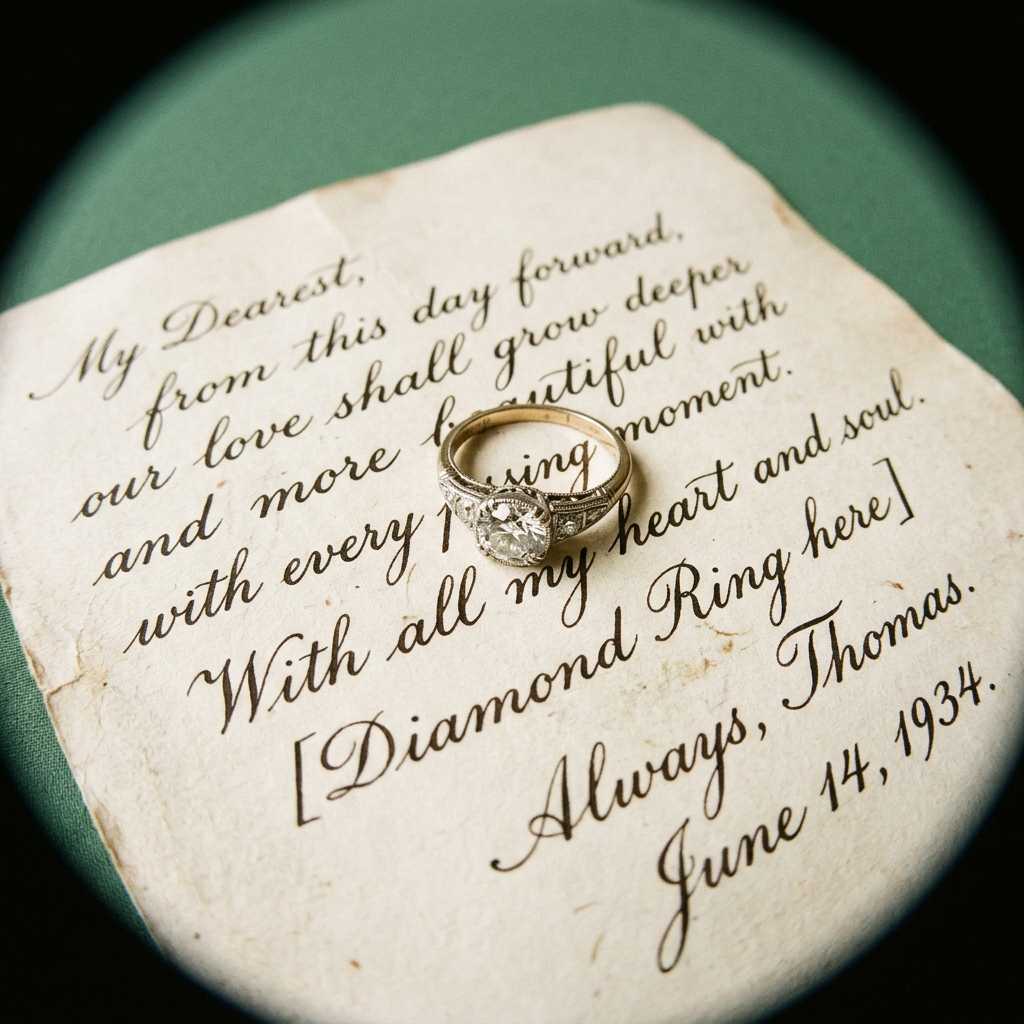 My Dearest,
from this day forward,
our love shall grow deeper
and more beautiful with
with every moment.
With all my heart and soul.
[Diamond Ring here]
Always, Thomas.
June 14, 1934.